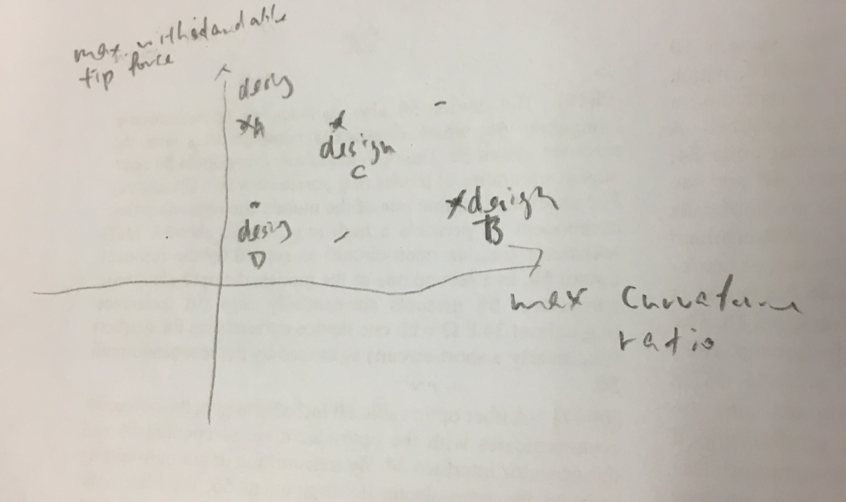 max. withstandable
tip force
desig
A
design
C
design
B
desig
D
max curvature
ratio